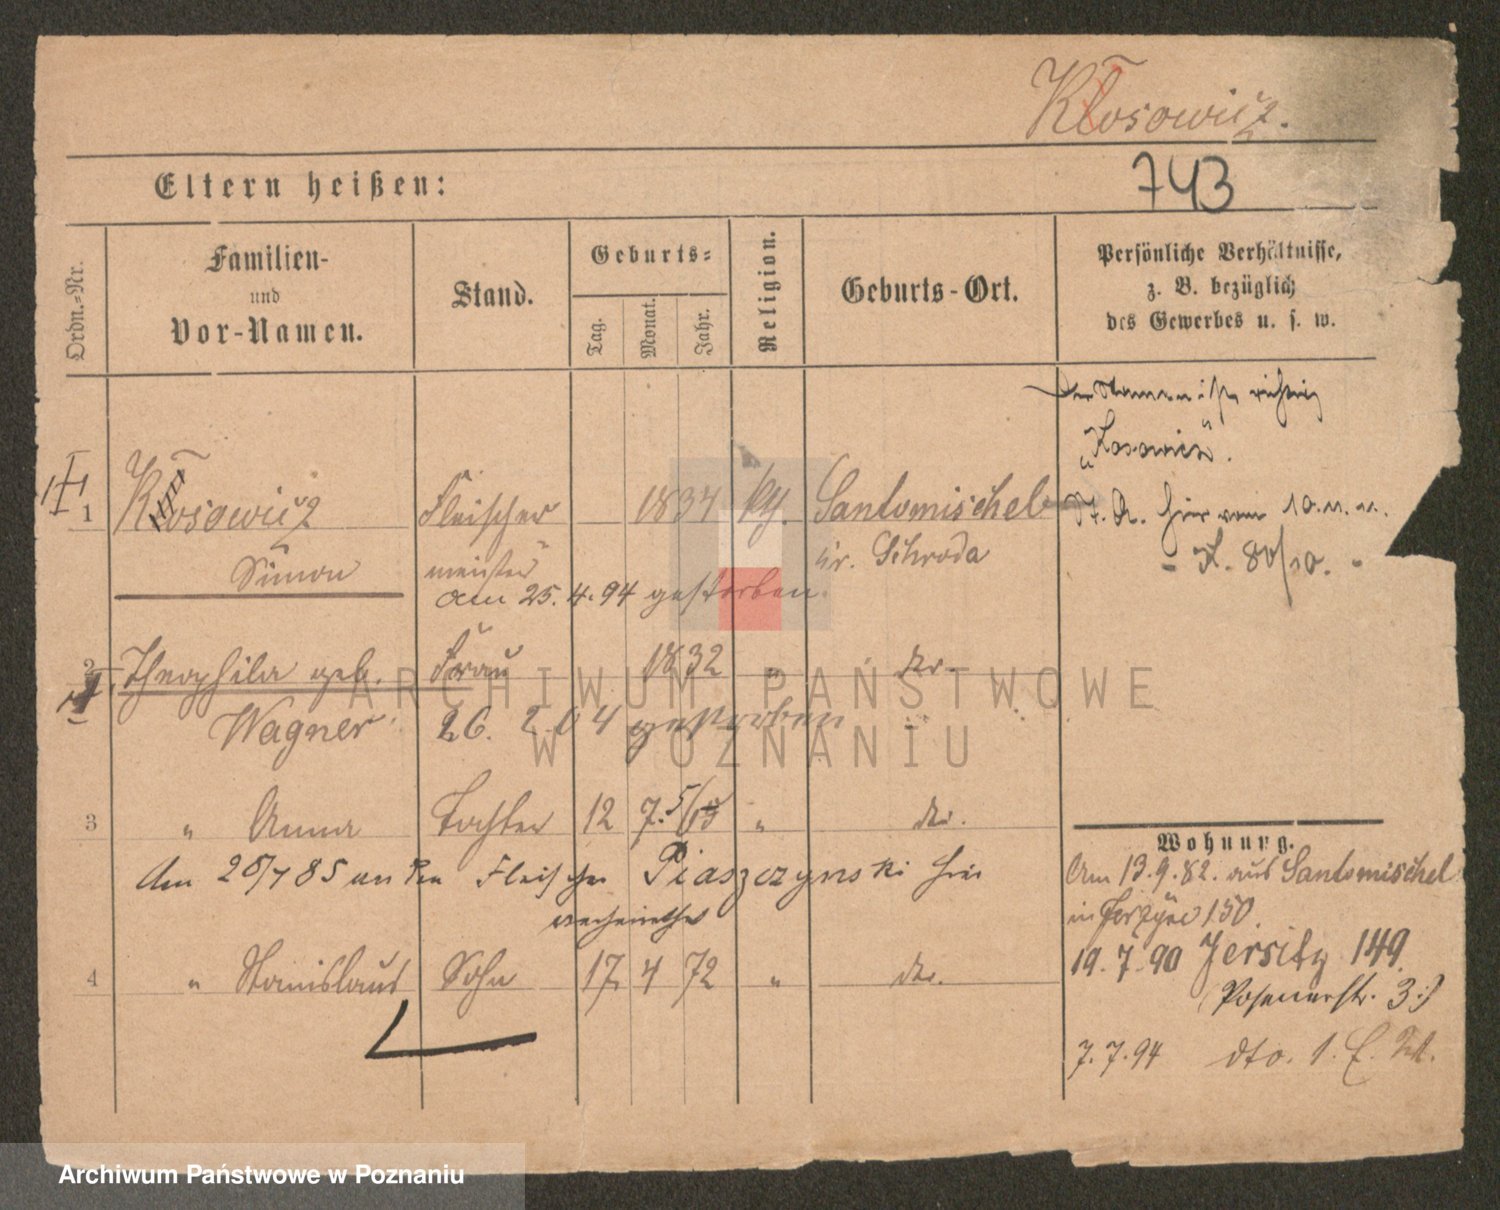 Kłosowicz.
743
Eltern heißen:
Ordn.-Nr.
Familien-
und
Vor-Namen.
Stand.
Geburts-
Tag.
Monat.
Jahr.
Religion.
Geburts-Ort.
Persönliche Verhältnisse,
z. B. bezüglich
des Gewerbes u. s. w.
Der Name ist richtig
„Kosowicz".
1 Kłosowicz Fleischer 1834 Santomischel
St. A. hier vom 10. 11. 11.
Simon meister Kr. Schroda
- K. 80/10. -
am 25.4.94 gestorben.
2 Theophila geb. Frau 1832 "
Wagner 26. 2. 04 gestorben
ARCHIWUM PAŃSTWOWE
W POZNANIU
3 " Anna Tochter 12 7. " do.
Am 25/7 85 an den Fleischer Piaszczynski hier
verheirathet
4 " Stanislaus Sohn 17 4 72 " do.
Wohnung.
Am 13.9.82. aus Santomischel
in Jerzyce 150.
19.7.90 Jersitz 149.
(Posenerstr. 3.)
7.7.94 dto. 1.
Archiwum Państwowe w Poznaniu